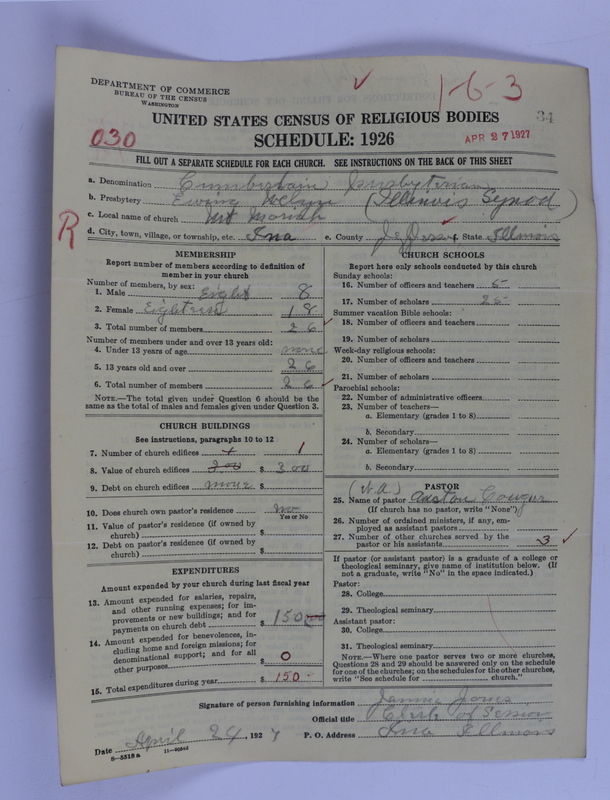 DEPARTMENT OF COMMERCE
BUREAU OF THE CENSUS
WASHINGTON
1-6-3
34
UNITED STATES CENSUS OF RELIGIOUS BODIES
030
SCHEDULE: 1926
APR 27 1927
FILL OUT A SEPARATE SCHEDULE FOR EACH CHURCH. SEE INSTRUCTIONS ON THE BACK OF THIS SHEET
a. Denomination Cumberland Presbyterian
b. Presbytery Ewing (Illinois Synod)
c. Local name of church Mt Moriah
R
d. City, town, village, or township, etc. Ina e. County Jefferson f. State Illinois
MEMBERSHIP
Report number of members according to definition of
member in your church
Number of members, by sex:
1. Male Eight 8
2. Female Eighteen 18
3. Total number of members 26
Number of members under and over 13 years old:
4. Under 13 years of age none
5. 13 years old and over 26
6. Total number of members 26
NOTE.—The total given under Question 6 should be
same as the total of males and females given under Question 3.
CHURCH BUILDINGS
See instructions, paragraphs 10 to 12
7. Number of church edifices 1
8. Value of church edifices 300 $ 300
9. Debt on church edifices none $
10. Does church own pastor's residence no
Yes or No
11. Value of pastor's residence (if owned by
church) $
12. Debt on pastor's residence (if owned by
church) $
EXPENDITURES
Amount expended by your church during last fiscal year
13. Amount expended for salaries, repairs,
and other running expenses; for im-
provements or new buildings; and for
payments on church debt $ 150.00
14. Amount expended for benevolences, in-
cluding home and foreign missions; for
denominational support; and for all
other purposes $ 0
15. Total expenditures during year $ 150-
CHURCH SCHOOLS
Report here only schools conducted by this church
Sunday schools:
16. Number of officers and teachers 5
17. Number of scholars 25
Summer vacation Bible schools:
18. Number of officers and teachers
19. Number of scholars
Week-day religious schools:
20. Number of officers and teachers
21. Number of scholars
Parochial schools:
22. Number of administrative officers
23. Number of teachers—
a. Elementary (grades 1 to 8)
b. Secondary
24. Number of scholars—
a. Elementary (grades 1 to 8)
b. Secondary
PASTOR
(N.A.)
25. Name of pastor
(If church has no pastor, write "None")
26. Number of ordained ministers, if any, em-
ployed as assistant pastors
27. Number of other churches served by the
pastor or his assistants 3
If pastor (or assistant pastor) is a graduate of a college or
theological seminary, give name of institution below. (If
not a graduate, write "No" in the space indicated.)
Pastor:
28. College
29. Theological seminary
Assistant pastor:
30. College
31. Theological seminary
NOTE.—Where one pastor serves two or more churches,
Questions 28 and 29 should be answered only on the schedule
for one of the churches; on the schedules for the other churches,
write "See schedule for church."
Signature of person furnishing information Jones
Official title Clerk of Session
Date April 24, 1927 P. O. Address Ina Illinois
8-5518a 11-60546